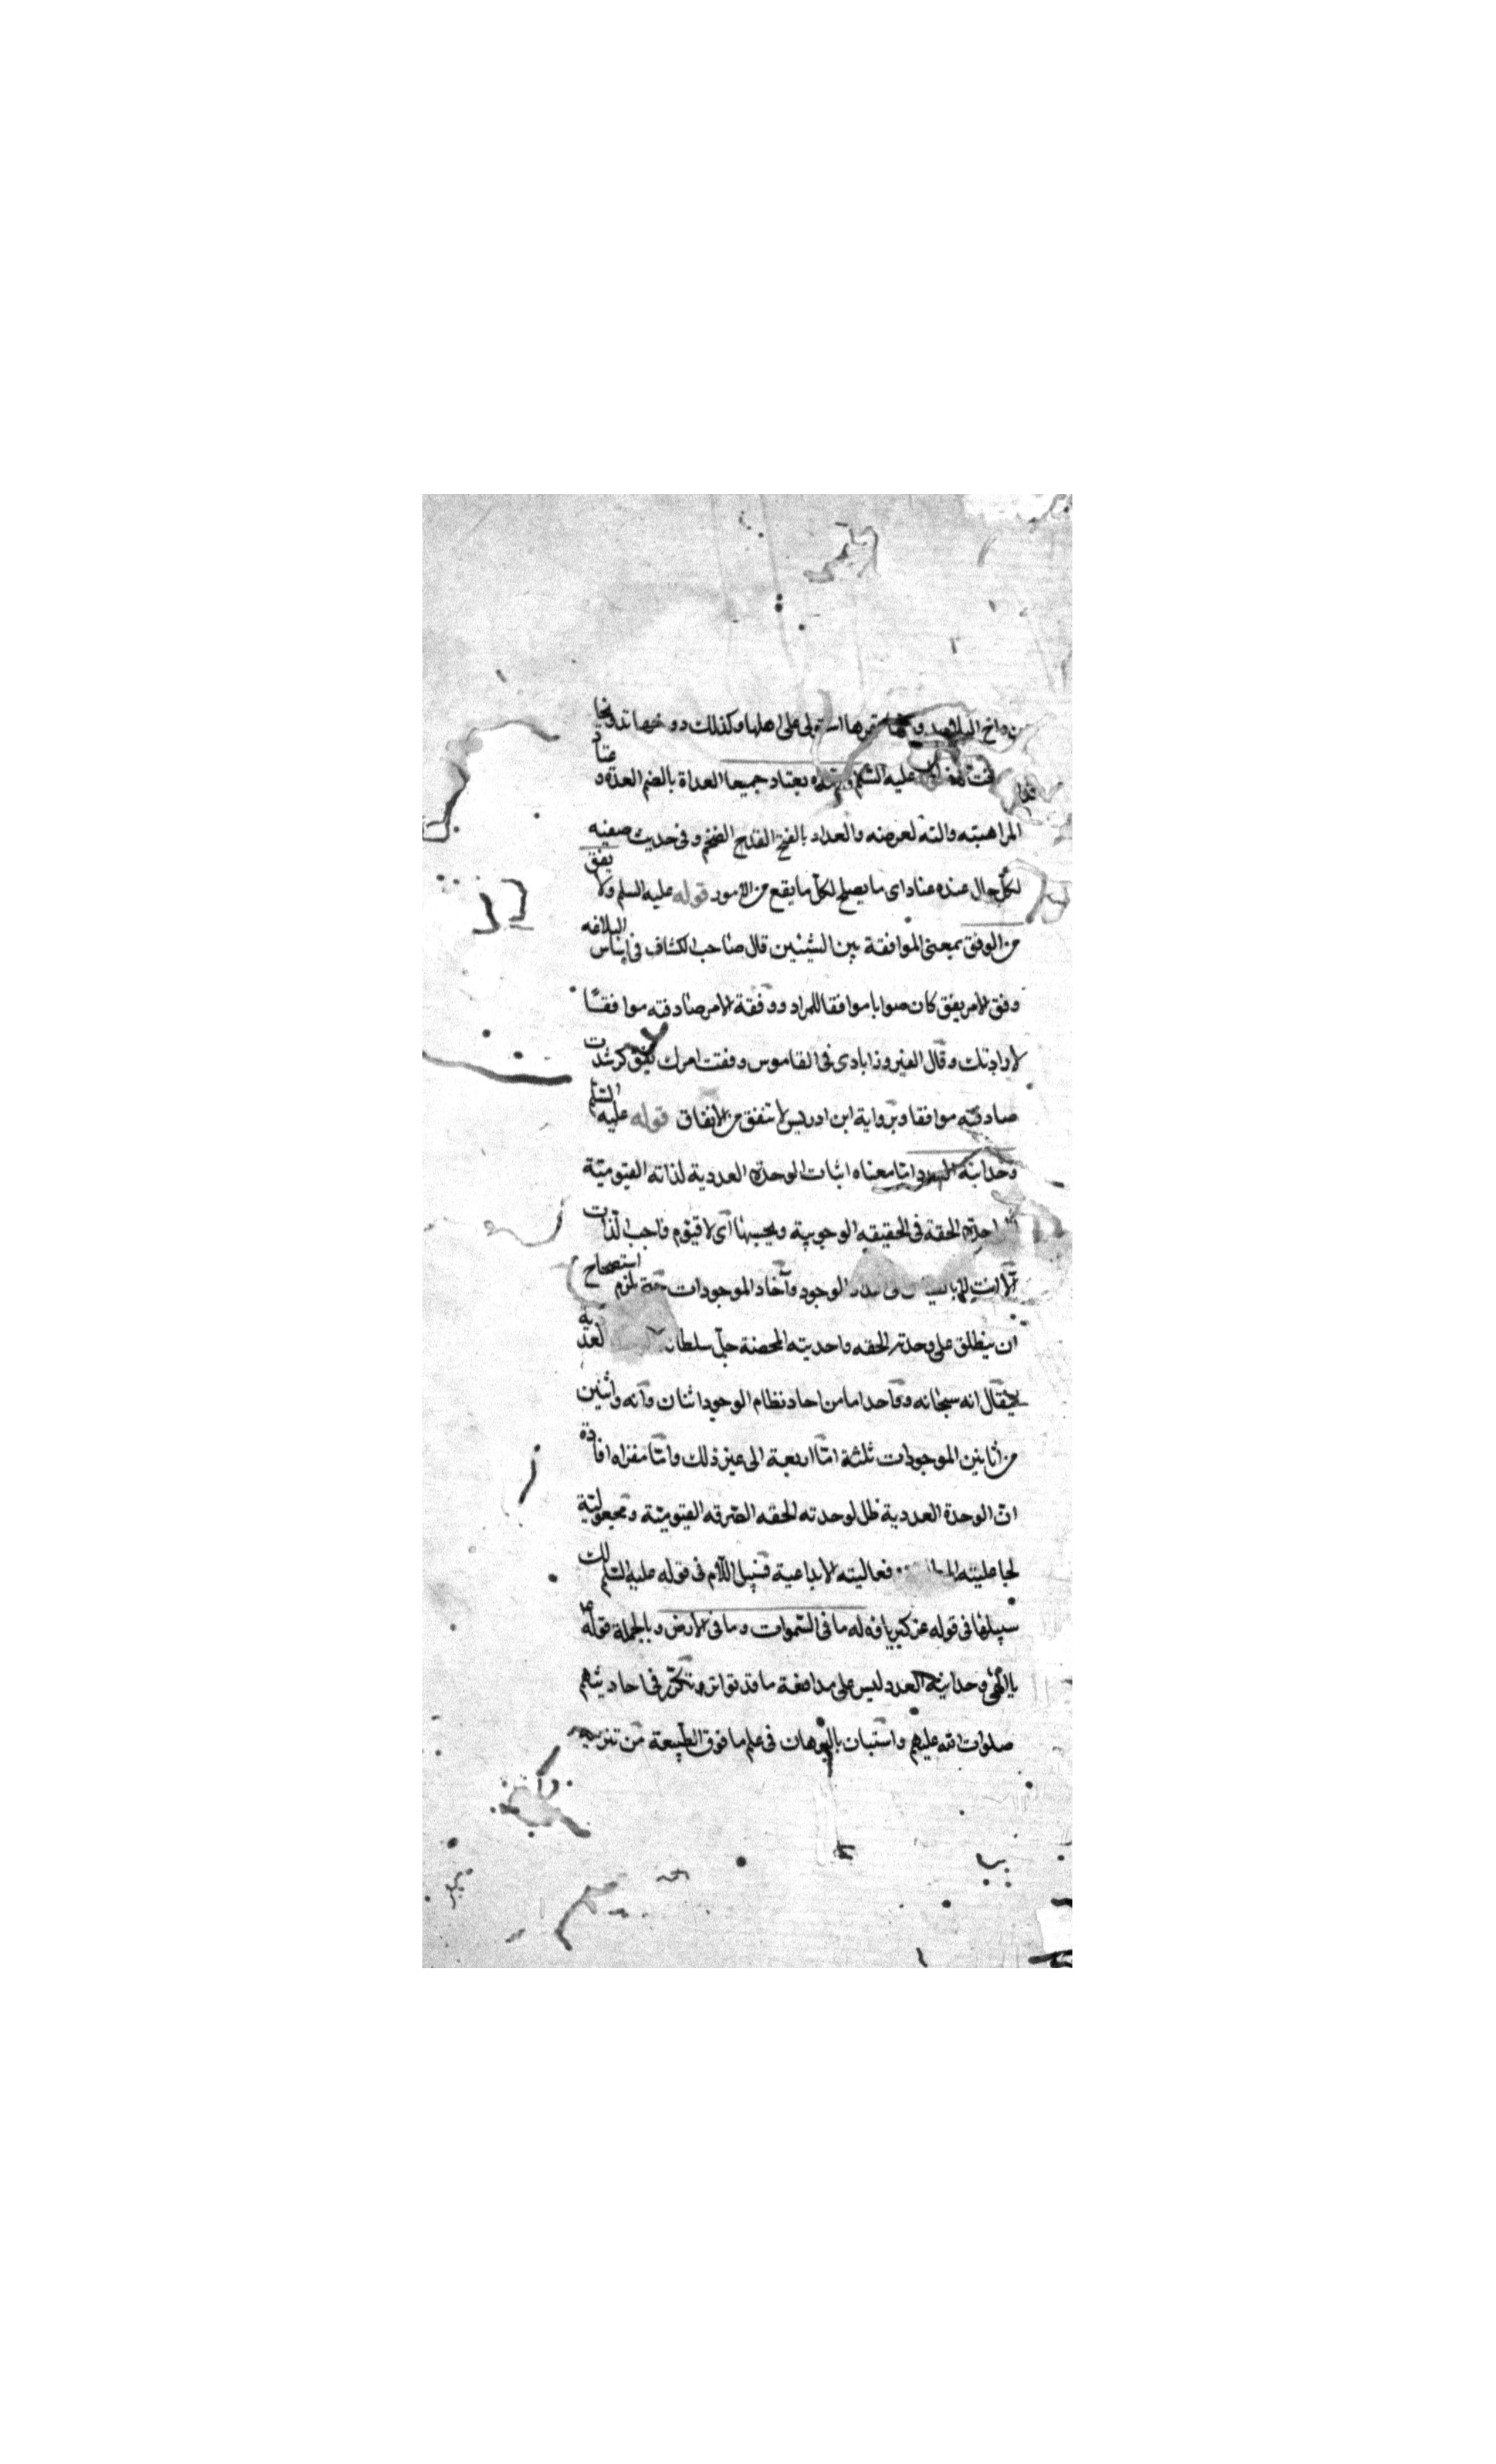 البلاد وكذلك دوخها تدويخا
عليه السلم جميعا العداة بالضم العدة و عتاد
المراهبته والته لعرضه والعداد بالفتح القدح الضخم وفى حديث صفيه
لكل حال عنده عتاد اى ما يصلح لكل ما يقع من الامور قوله عليه السلم ولا يفق
من الوفق بمعنى الموافقة بين الشيئين قال صاحب الكشاف فى اساس البلاغه
وفق الامر يفق كان صوابا موافقا للمراد ووفقة الامر صادفته موافقا
لارادتك وقال الفيروزابادى فى القاموس وفقت امرك تفق كرشدت
صادفته موافقا وبرواية ابن ادريس لا تتفق من الاتفاق قوله عليه السلم
وحدانية العدد انما معناه اثبات الوحدة العددية لذاته القيومية
الحقة فى الحقيقه الوجوبية وبحسبها اى لا قيوم واجب الذات
الا انت الوجود وآحاد الموجودات استصحاح
ان ينطلق على وحدته الحقه واحديته المحضة جل سلطانه
يقال انه سبحانه وواحدا ما من احاد نظام الوجود اثنان وانه واثنين
من اثانين الموجودات ثلثة اما اربعة الى غير ذلك واما مغزاه افادة
ان الوحدة العددية ظل لوحدته الحقه الصرفه القيومية ومجعولية
لجاعليته فعاليته الابداعية فسبيل اللام فى قوله عليه السلم لك
سبيلها فى قوله عز كبريافه له ما فى السموات وما فى الارض وبالجملة قوله
يا الهى وحدانية العدد ليس على مدافعة ما قد تواتر وتكرر فى احاديثهم
صلوات الله عليهم واستبان بالبرهان فى علم ما فوق الطبيعة من تنزيهه